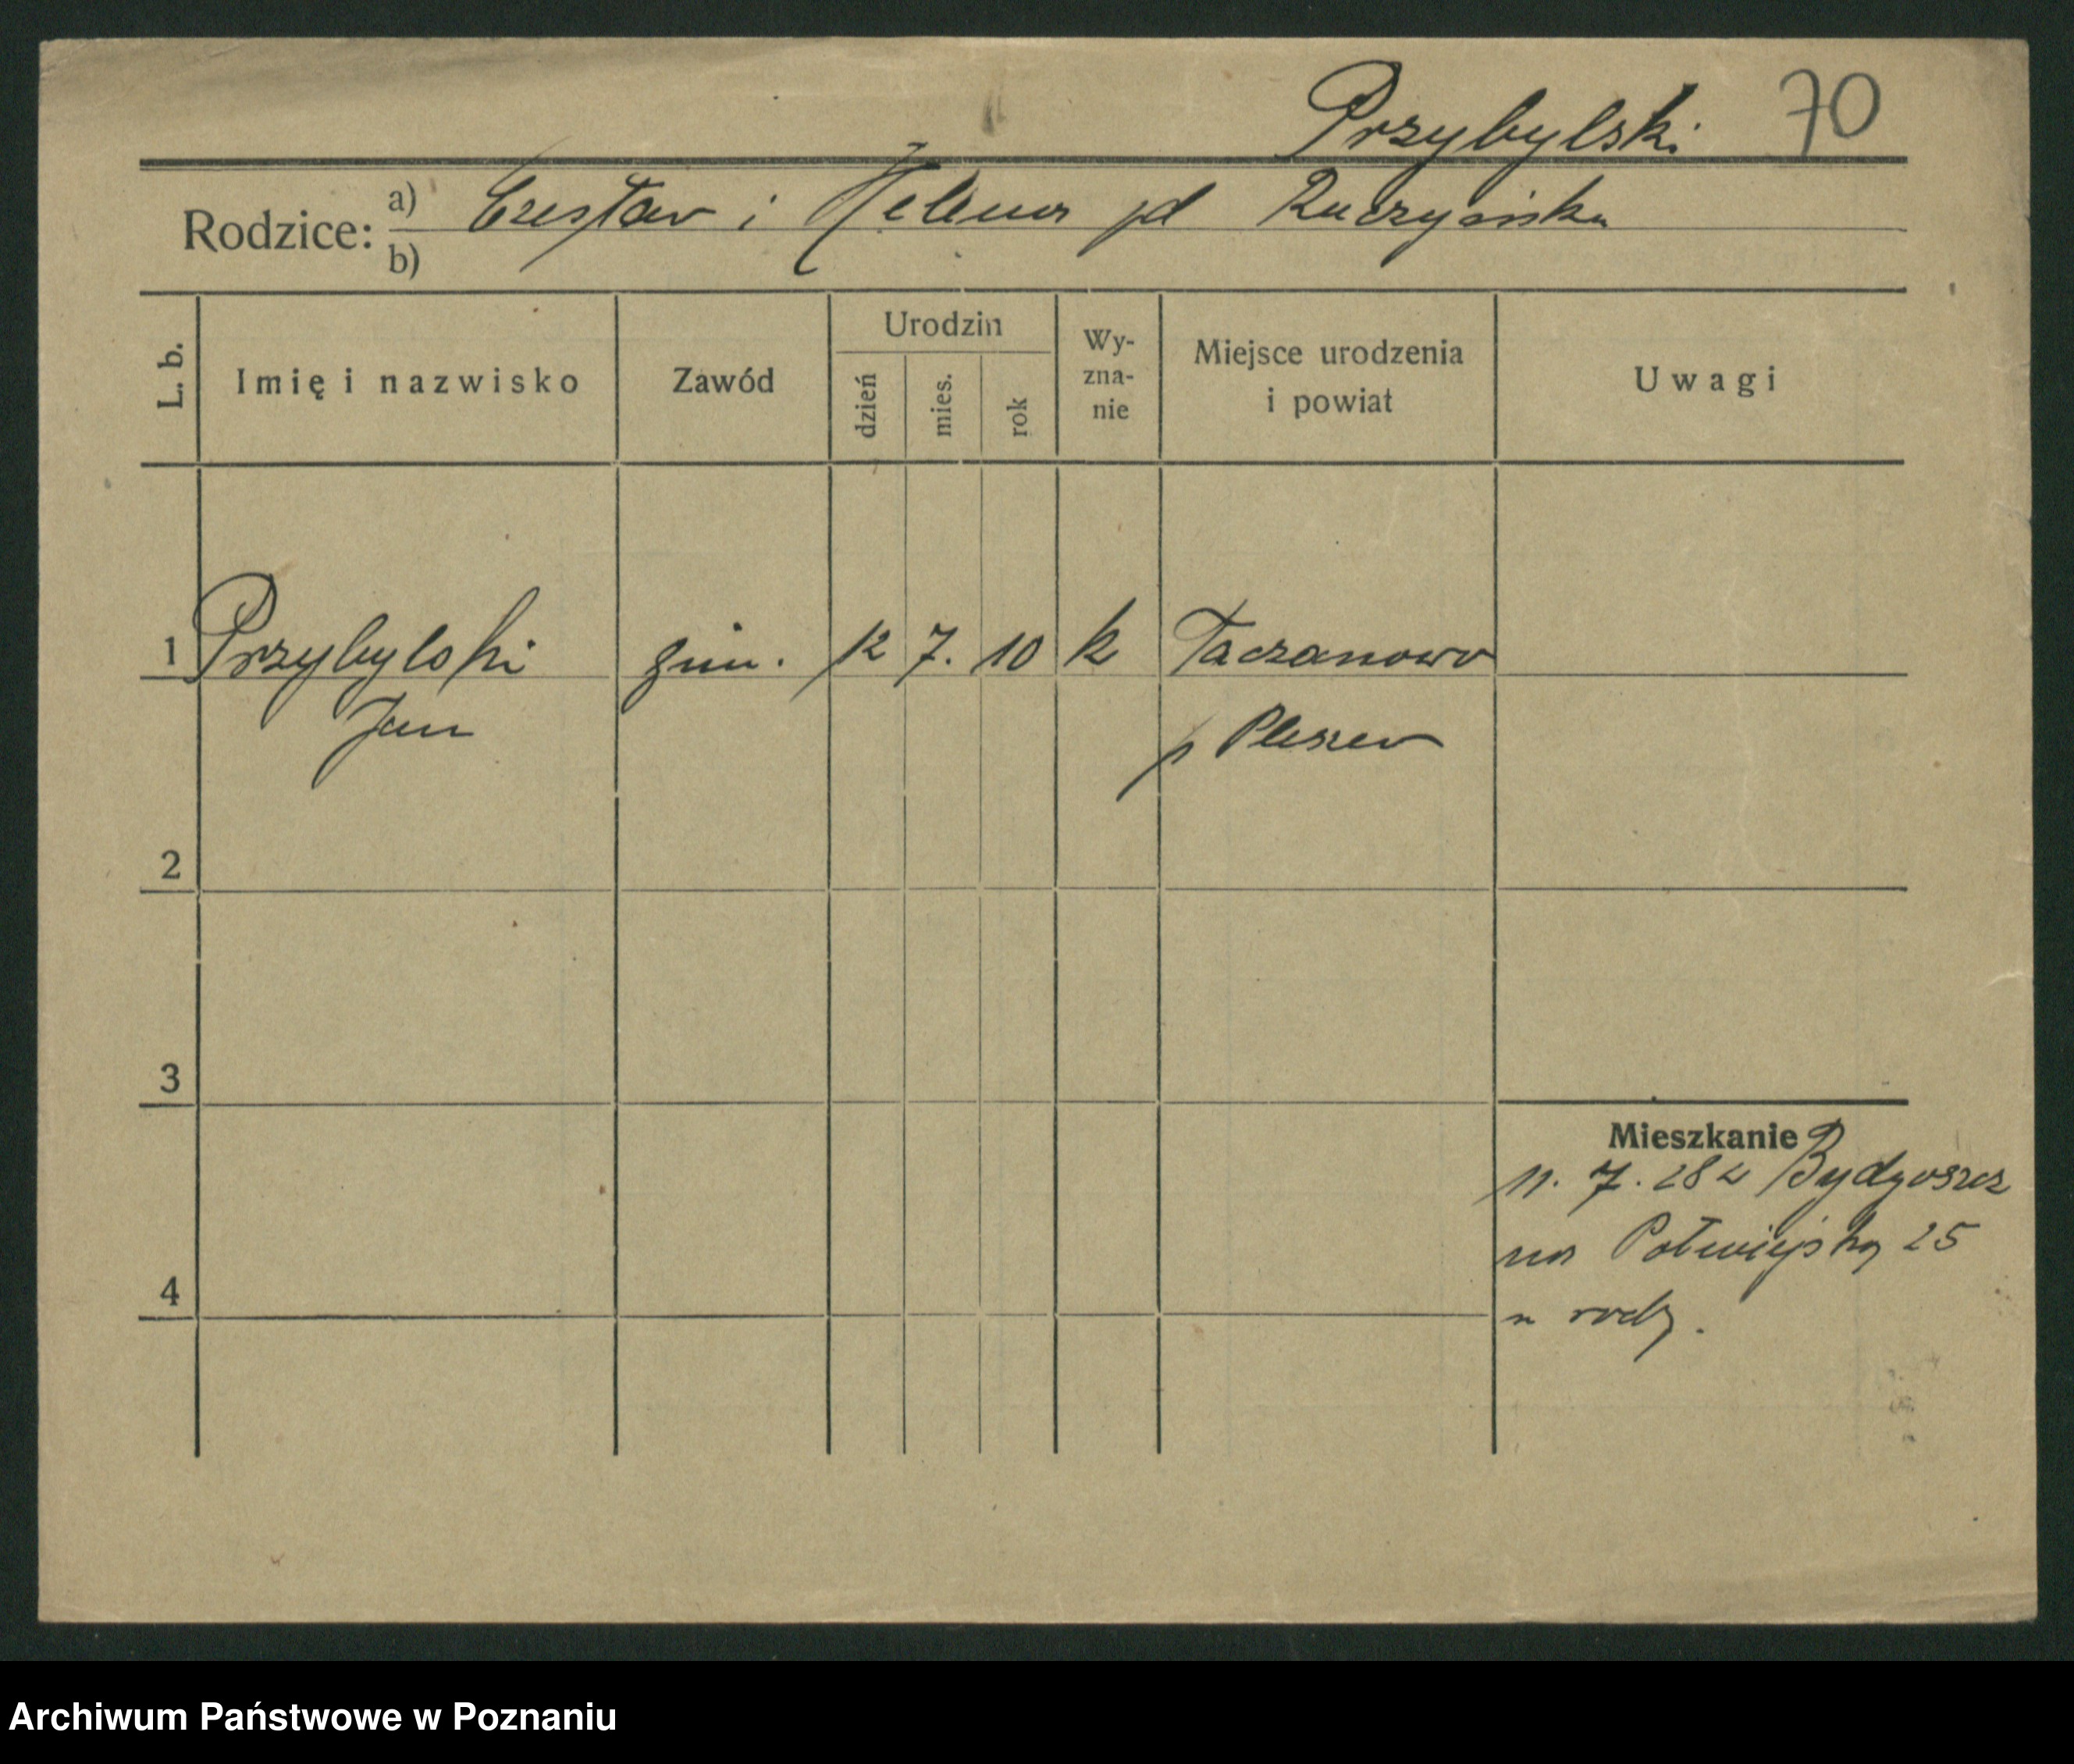 Przybylski 70
Rodzice: a) Czesław i Helena pd Ruczyńska
b)
L. b. Imię i nazwisko Zawód Urodzin dzień mies. rok Wy-zna-nie Miejsce urodzenia i powiat Uwagi
1 Przybylski gim. 12 7. 10 k Taczanowo
Jan p Pleszew
2
3
Mieszkanie
11. 7. 28 z Bydgoszcz
na Półwiejską 25
4
u rodz.
Archiwum Państwowe w Poznaniu